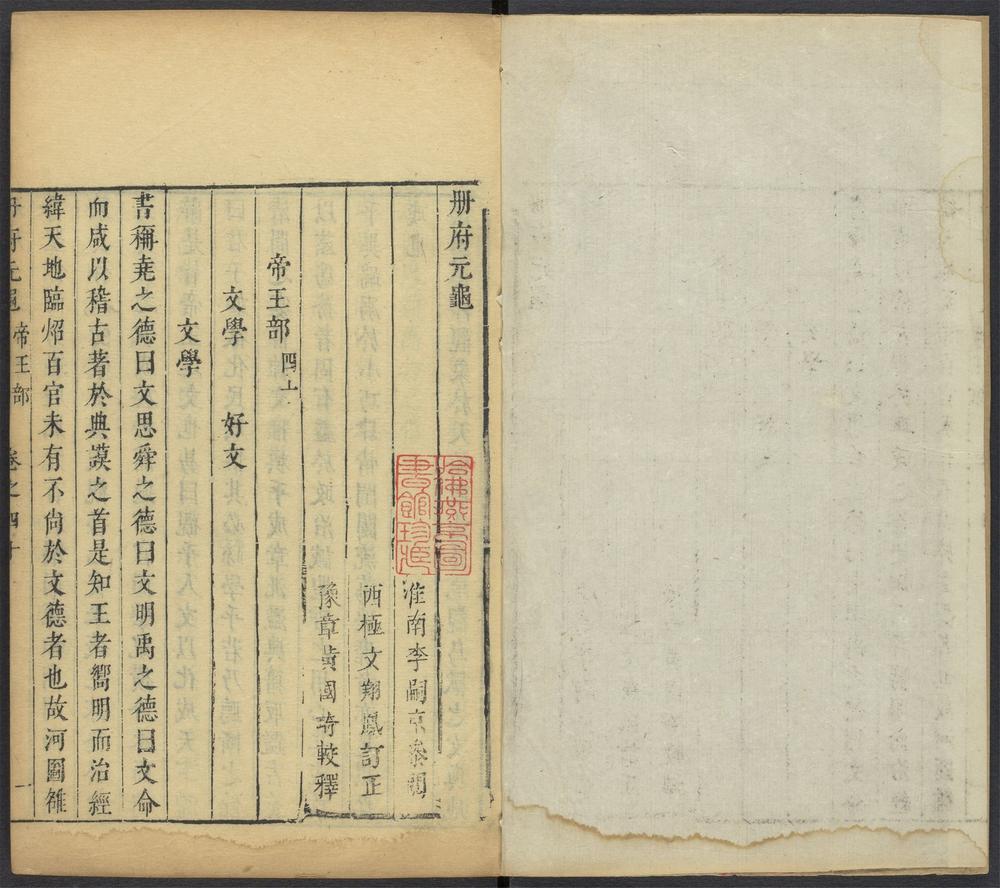 册府元龜
哈佛燕京圖
書館珍藏
淮南李嗣京參閱
西極文翔鳳訂正
豫章黃國琦較釋
帝王部 四十
文學 好文
文學
書稱堯之德曰文思舜之德曰文明禹之德曰文命
而咸以稽古著於典謨之首是知王者嚮明而治經
緯天地臨炤百官未有不尚於文德者也故河圖雒
册府元龜 帝王部 卷之四十 一